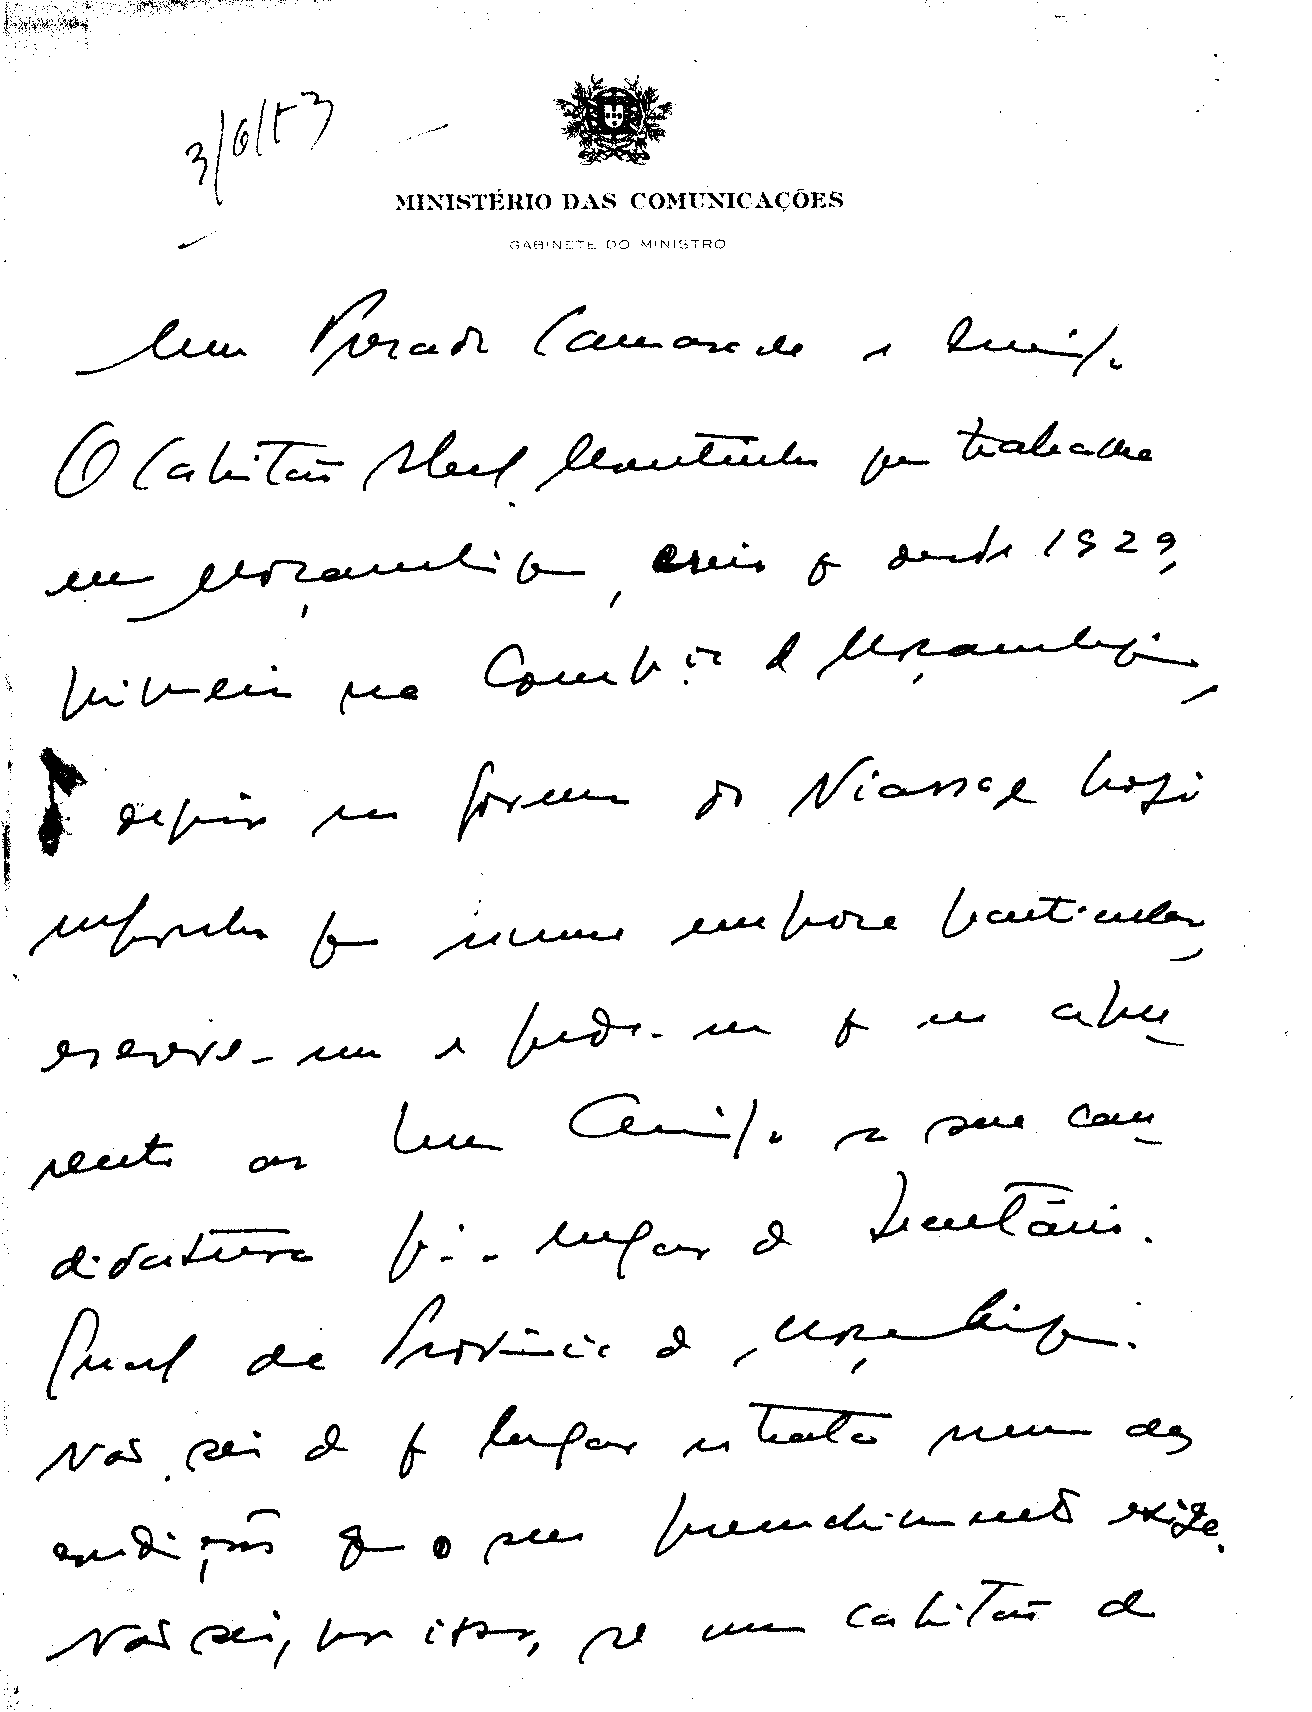 3/6/53
MINISTÉRIO DAS COMUNICAÇÕES
GABINETE DO MINISTRO
Meu Prezado Camarada e Amigo
O Capitão Abel Moutinho que trabalha
em Moçambique, creio q desde 1929,
primeiro na Comp.ia de Moçambique,
depois no governo do Niassa e hoje
numa empresa particular,
escreve-me e pede-me q me apre-
sente ao meu Amigo a sua can-
didatura p.a o lugar de Secretário.
Geral da Província de Moçambique.
Não sei de q lugar se trata nem das
condições que o seu preenchimento exige.
Não sei, por isso, se um capitão de